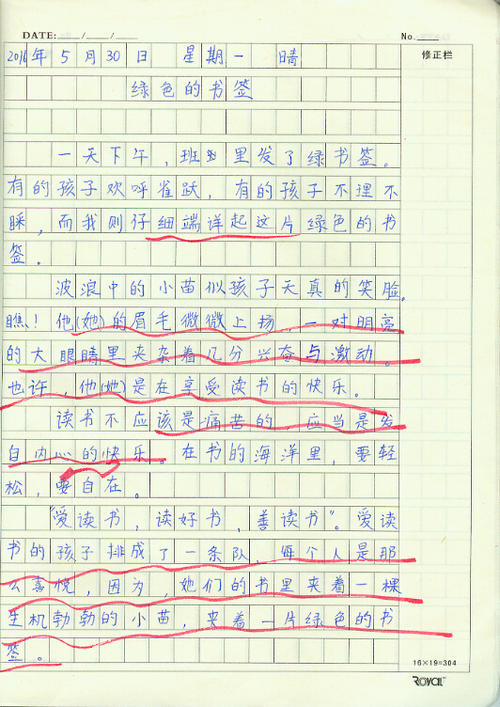 DATE: / /
No.
修正栏
2016年5月30日 星期一 晴
绿色的书签
一天下午,班里发了绿书签。
有的孩子欢呼雀跃,有的孩子不理不
睬,而我则仔细端详起这片绿色的书
签。
波浪中的小苗似孩子天真的笑脸。
瞧!他(她)的眉毛微微上扬,一对明亮
的大眼睛里夹杂着几分兴奋与激动。
也许,他(她)是在享受读书的快乐。
读书不应该是痛苦的,应当是发
自内心的快乐。在书的海洋里,要轻
松,要自在。
“爱读书,读好书,善读书”。爱读
书的孩子排成了一条队,每个人是那
么喜悦,因为,她们的书里夹着一棵
生机勃勃的小苗,夹着一片绿色的书
签。
16×19=304
ROYAL